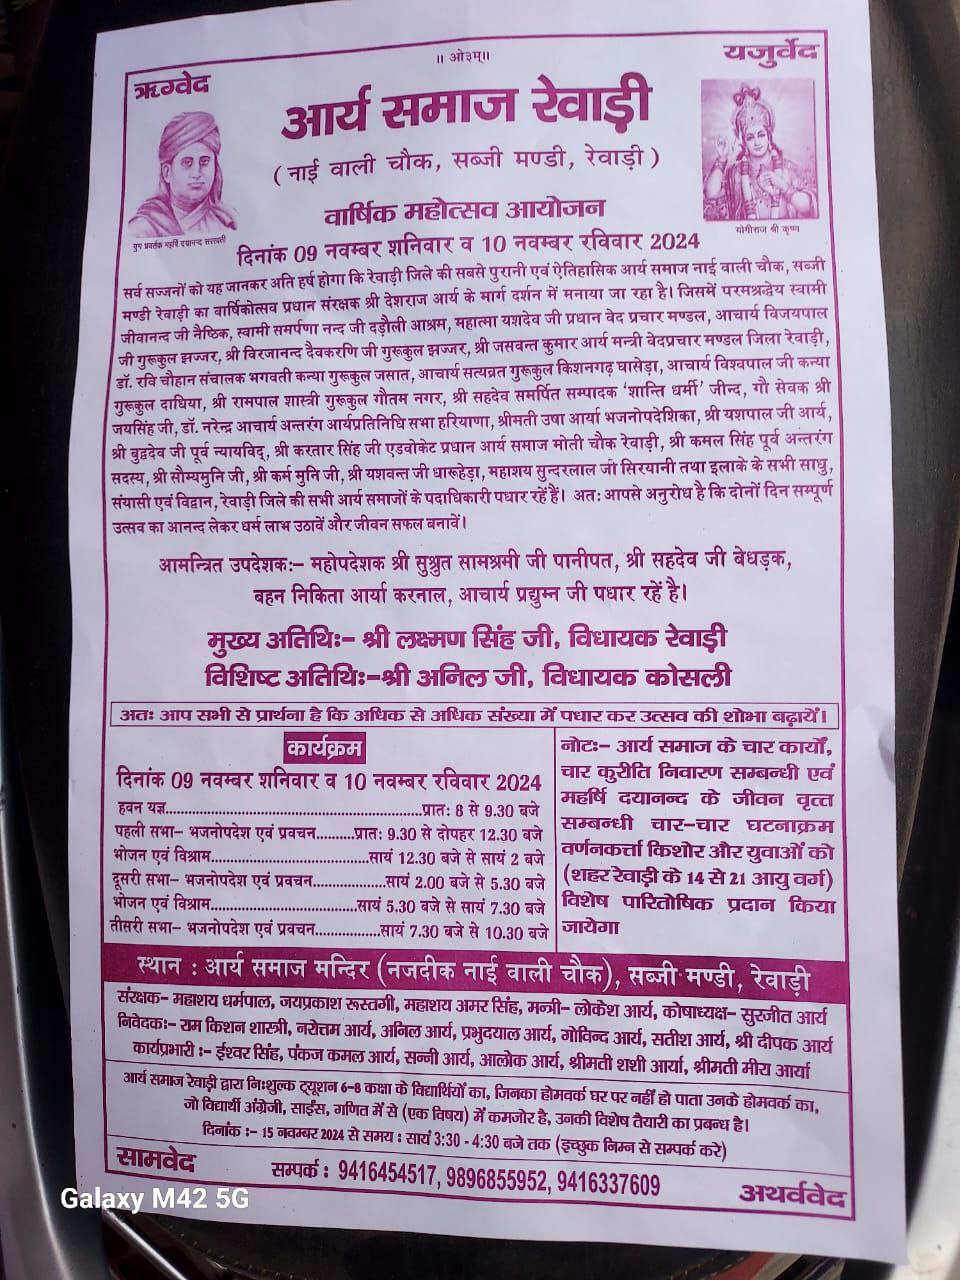 ॥ ओ३म्॥
ऋग्वेद
यजुर्वेद
आर्य समाज रेवाड़ी
(नाई वाली चौक, सब्जी मण्डी, रेवाड़ी)
युग प्रवर्तक महर्षि दयानन्द सरस्वती
योगीराज श्री कृष्ण
वार्षिक महोत्सव आयोजन
दिनांक 09 नवम्बर शनिवार व 10 नवम्बर रविवार 2024
सर्व सज्जनों को यह जानकर अति हर्ष होगा कि रेवाड़ी जिले की सबसे पुरानी एवं ऐतिहासिक आर्य समाज नाई वाली चौक, सब्जी
मण्डी रेवाड़ी का वार्षिकोत्सव प्रधान संरक्षक श्री देशराज आर्य के मार्ग दर्शन में मनाया जा रहा है। जिसमें परमश्रद्धेय स्वामी
जीवानन्द जी नैष्ठिक, स्वामी समर्पणा नन्द जी दड़ौली आश्रम, महात्मा यशदेव जी प्रधान वेद प्रचार मण्डल, आचार्य विजयपाल
जी गुरूकुल झज्जर, श्री विरजानन्द दैवकरणि जी गुरूकुल झज्जर, श्री जसवन्त कुमार आर्य मन्त्री वेदप्रचार मण्डल जिला रेवाड़ी,
डॉ. रवि चौहान संचालक भगवती कन्या गुरूकुल जसात, आचार्य सत्यव्रत गुरूकुल किशनगढ़ घासेड़ा, आचार्य विश्वपाल जी कन्या
गुरूकुल दाधिया, श्री रामपाल शास्त्री गुरूकुल गौतम नगर, श्री सहदेव समर्पित सम्पादक 'शान्ति धर्मी' जीन्द, गौ सेवक श्री
जयसिंह जी, डॉ. नरेन्द्र आचार्य अन्तरंग आर्यप्रतिनिधि सभा हरियाणा, श्रीमती उषा आर्या भजनोपदेशिका, श्री यशपाल जी आर्य,
श्री बुद्वदेव जी पूर्व न्यायविद्, श्री करतार सिंह जी एडवोकेट प्रधान आर्य समाज मोती चौक रेवाड़ी, श्री कमल सिंह पूर्व अन्तरंग
सदस्य, श्री सौम्यमुनि जी, श्री कर्म मुनि जी, श्री यशवन्त जी धारूहेड़ा, महाशय सुन्दरलाल जी सिरयानी तथा इलाके के सभी साधु,
संयासी एवं विद्वान, रेवाड़ी जिले की सभी आर्य समाजों के पदाधिकारी पधार रहें हैं। अतः आपसे अनुरोध है कि दोनों दिन सम्पूर्ण
उत्सव का आनन्द लेकर धर्म लाभ उठावें और जीवन सफल बनावें।
आमन्त्रित उपदेशकः– महोपदेशक श्री सुश्रुत सामश्रमी जी पानीपत, श्री सहदेव जी बेधड़क,
बहन निकिता आर्या करनाल, आचार्य प्रद्युम्न जी पधार रहें है।
मुख्य अतिथिः– श्री लक्ष्मण सिंह जी, विधायक रेवाड़ी
विशिष्ट अतिथिः–श्री अनिल जी, विधायक कोसली
अतः आप सभी से प्रार्थना है कि अधिक से अधिक संख्या में पधार कर उत्सव की शोभा बढ़ायें।
कार्यक्रम
दिनांक 09 नवम्बर शनिवार व 10 नवम्बर रविवार 2024
हवन यज्ञ..................................................प्रातः 8 से 9.30 बजे
पहली सभा– भजनोपदेश एवं प्रवचन.........प्रातः 9.30 से दोपहर 12.30 बजे
भोजन एवं विश्राम......................................सायं 12.30 बजे से सायं 2 बजे
दूसरी सभा– भजनोपदेश एवं प्रवचन.................सायं 2.00 बजे से 5.30 बजे
भोजन एवं विश्राम...................................सायं 5.30 बजे से सायं 7.30 बजे
तीसरी सभा– भजनोपदेश एवं प्रवचन...............सायं 7.30 बजे से 10.30 बजे
नोटः– आर्य समाज के चार कार्यों,
चार कुरीति निवारण सम्बन्धी एवं
महर्षि दयानन्द के जीवन वृत्त
सम्बन्धी चार–चार घटनाक्रम
वर्णनकर्त्ता किशोर और युवाओं को
(शहर रेवाड़ी के 14 से 21 आयु वर्ग)
विशेष पारितोषिक प्रदान किया
जायेगा
स्थान : आर्य समाज मन्दिर (नजदीक नाई वाली चौक), सब्जी मण्डी, रेवाड़ी
संरक्षक– महाशय धर्मपाल, जयप्रकाश रूस्तगी, महाशय अमर सिंह, मन्त्री– लोकेश आर्य, कोषाध्यक्ष– सुरजीत आर्य
निवेदकः– राम किशन शास्त्री, नरोत्तम आर्य, अनिल आर्य, प्रभुदयाल आर्य, गोविन्द आर्य, सतीश आर्य, श्री दीपक आर्य
कार्यप्रभारी :– ईश्वर सिंह, पंकज कमल आर्य, सन्नी आर्य, आलोक आर्य, श्रीमती शशी आर्या, श्रीमती मीरा आर्या
आर्य समाज रेवाड़ी द्वारा निःशुल्क ट्यूशन 6–8 कक्षा के विद्यार्थियों का, जिनका होमवर्क घर पर नहीं हो पाता उनके होमवर्क का,
जो विद्यार्थी अंग्रेजी, साईंस, गणित में से (एक विषय) में कमजोर है, उनकी विशेष तैयारी का प्रबन्ध है।
दिनांक :– 15 नवम्बर 2024 से समय : सायं 3:30 - 4:30 बजे तक (इच्छुक निम्न से सम्पर्क करे)
सामवेद
सम्पर्क : 9416454517, 9896855952, 9416337609
अथर्ववेद
Galaxy M42 5G